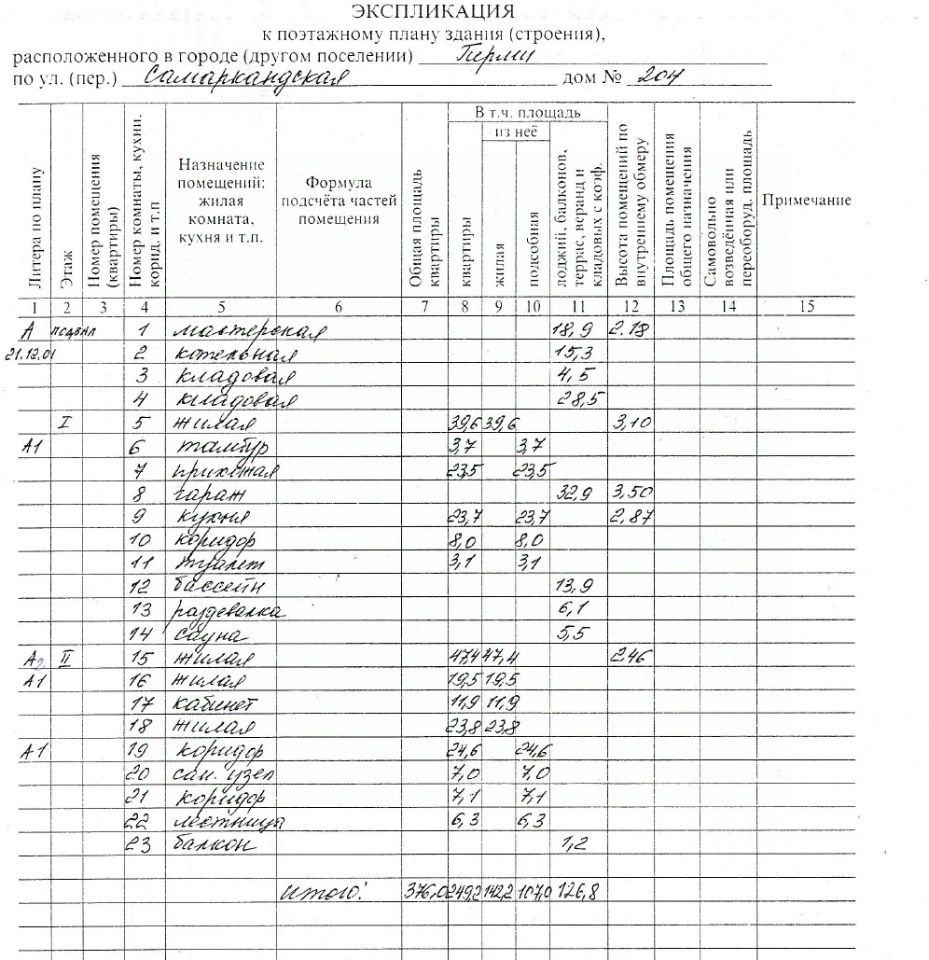 ЭКСПЛИКАЦИЯ
к поэтажному плану здания (строения),
расположенного в городе (другом поселении) Перми
по ул. (пер.) Самаркандская дом № 204
Литера по плану
Этаж
Номер помещения (квартиры)
Номер комнаты, кухни. корид. и т.п
Назначение помещений: жилая комната, кухня и т.п.
Формула подсчёта частей помещения
Общая площадь квартиры
В т.ч. площадь
из неё
квартиры
жилая
подсобная
лоджий, балконов, террас, веранд и кладовых с коэф.
Высота помещений по внутреннему обмеру
Площадь помещения общего назначения
Самовольно возведённая или переоборуд. площадь
Примечание
1 2 3 4 5 6 7 8 9 10 11 12 13 14 15
А подвал 1 мастерская 18,9 2.18
21.12.01 2 котельная 15,3
3 кладовая 4,5
4 кладовая 28,5
I 5 жилая 39,6 39,6 3,10
А1 6 тамбур 3,7 3,7
7 прихожая 23,5 23,5
8 гараж 32,9 3,50
9 кухня 23,7 23,7 2,87
10 коридор 8,0 8,0
11 туалет 3,1 3,1
12 бассейн 13,9
13 раздевалка 6,1
14 сауна 5,5
А2 II 15 жилая 47,4 47,4 2,46
А1 16 жилая 19,5 19,5
17 кабинет 11,9 11,9
18 жилая 23,8 23,8
А1 19 коридор 24,6 24,6
20 сан. узел 7,0 7,0
21 коридор 7,1 7,1
22 лестница 6,3 6,3
23 балкон 1,2
итого: 376,0 249,2 142,2 107,0 126,8